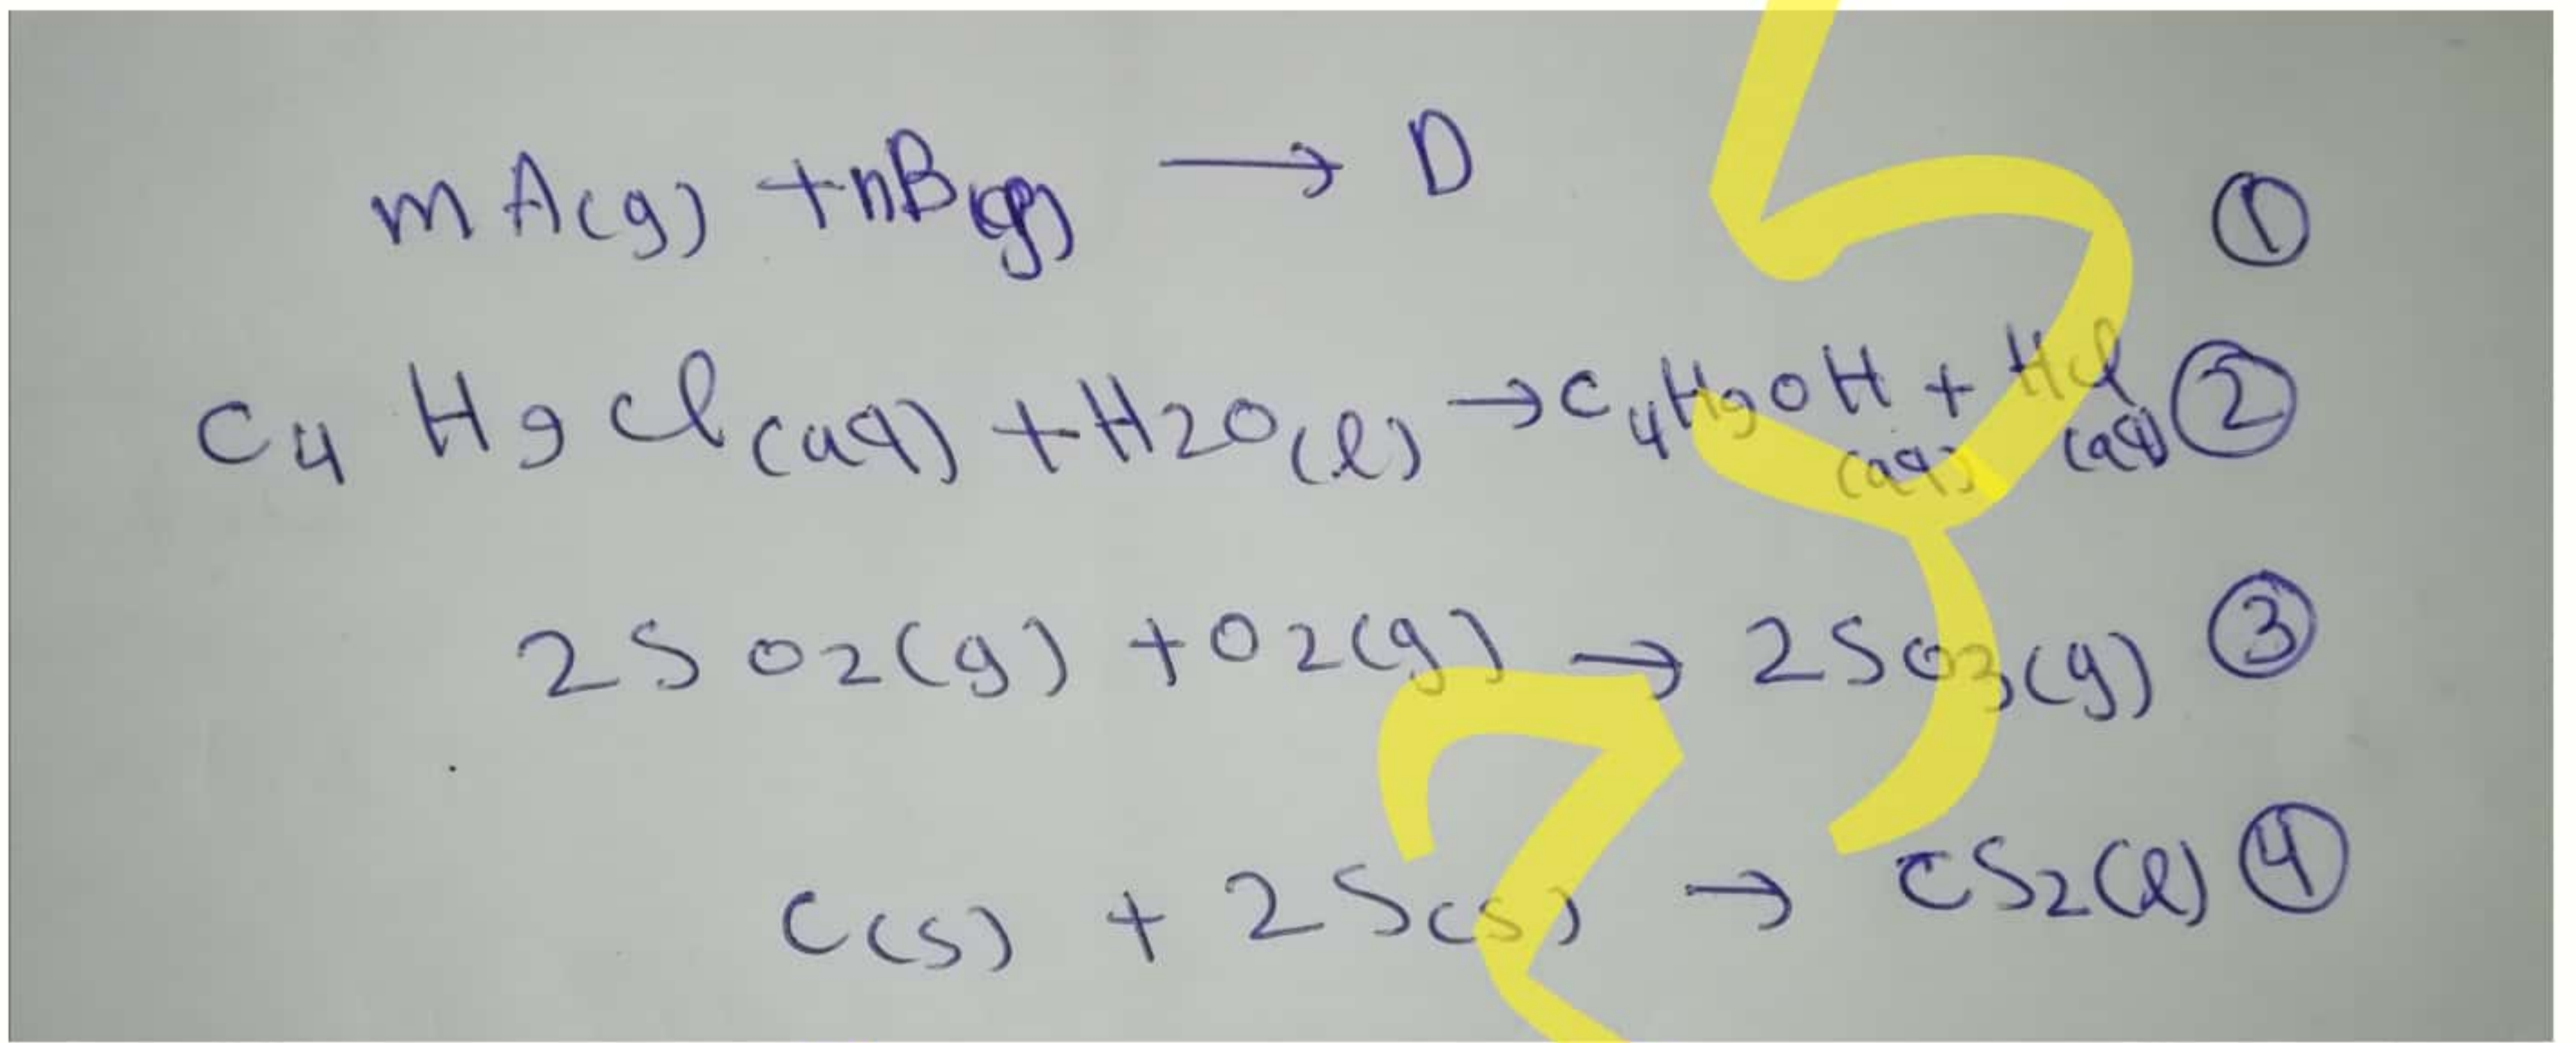 mA(g) + nB(g) → D ①
C4H9Cl(aq) + H2O(l) → C4H9OH(aq) + HCl(aq) ②
2SO2(g) + O2(g) → 2SO3(g) ③
C(s) + 2S(s) → CS2(l) ④